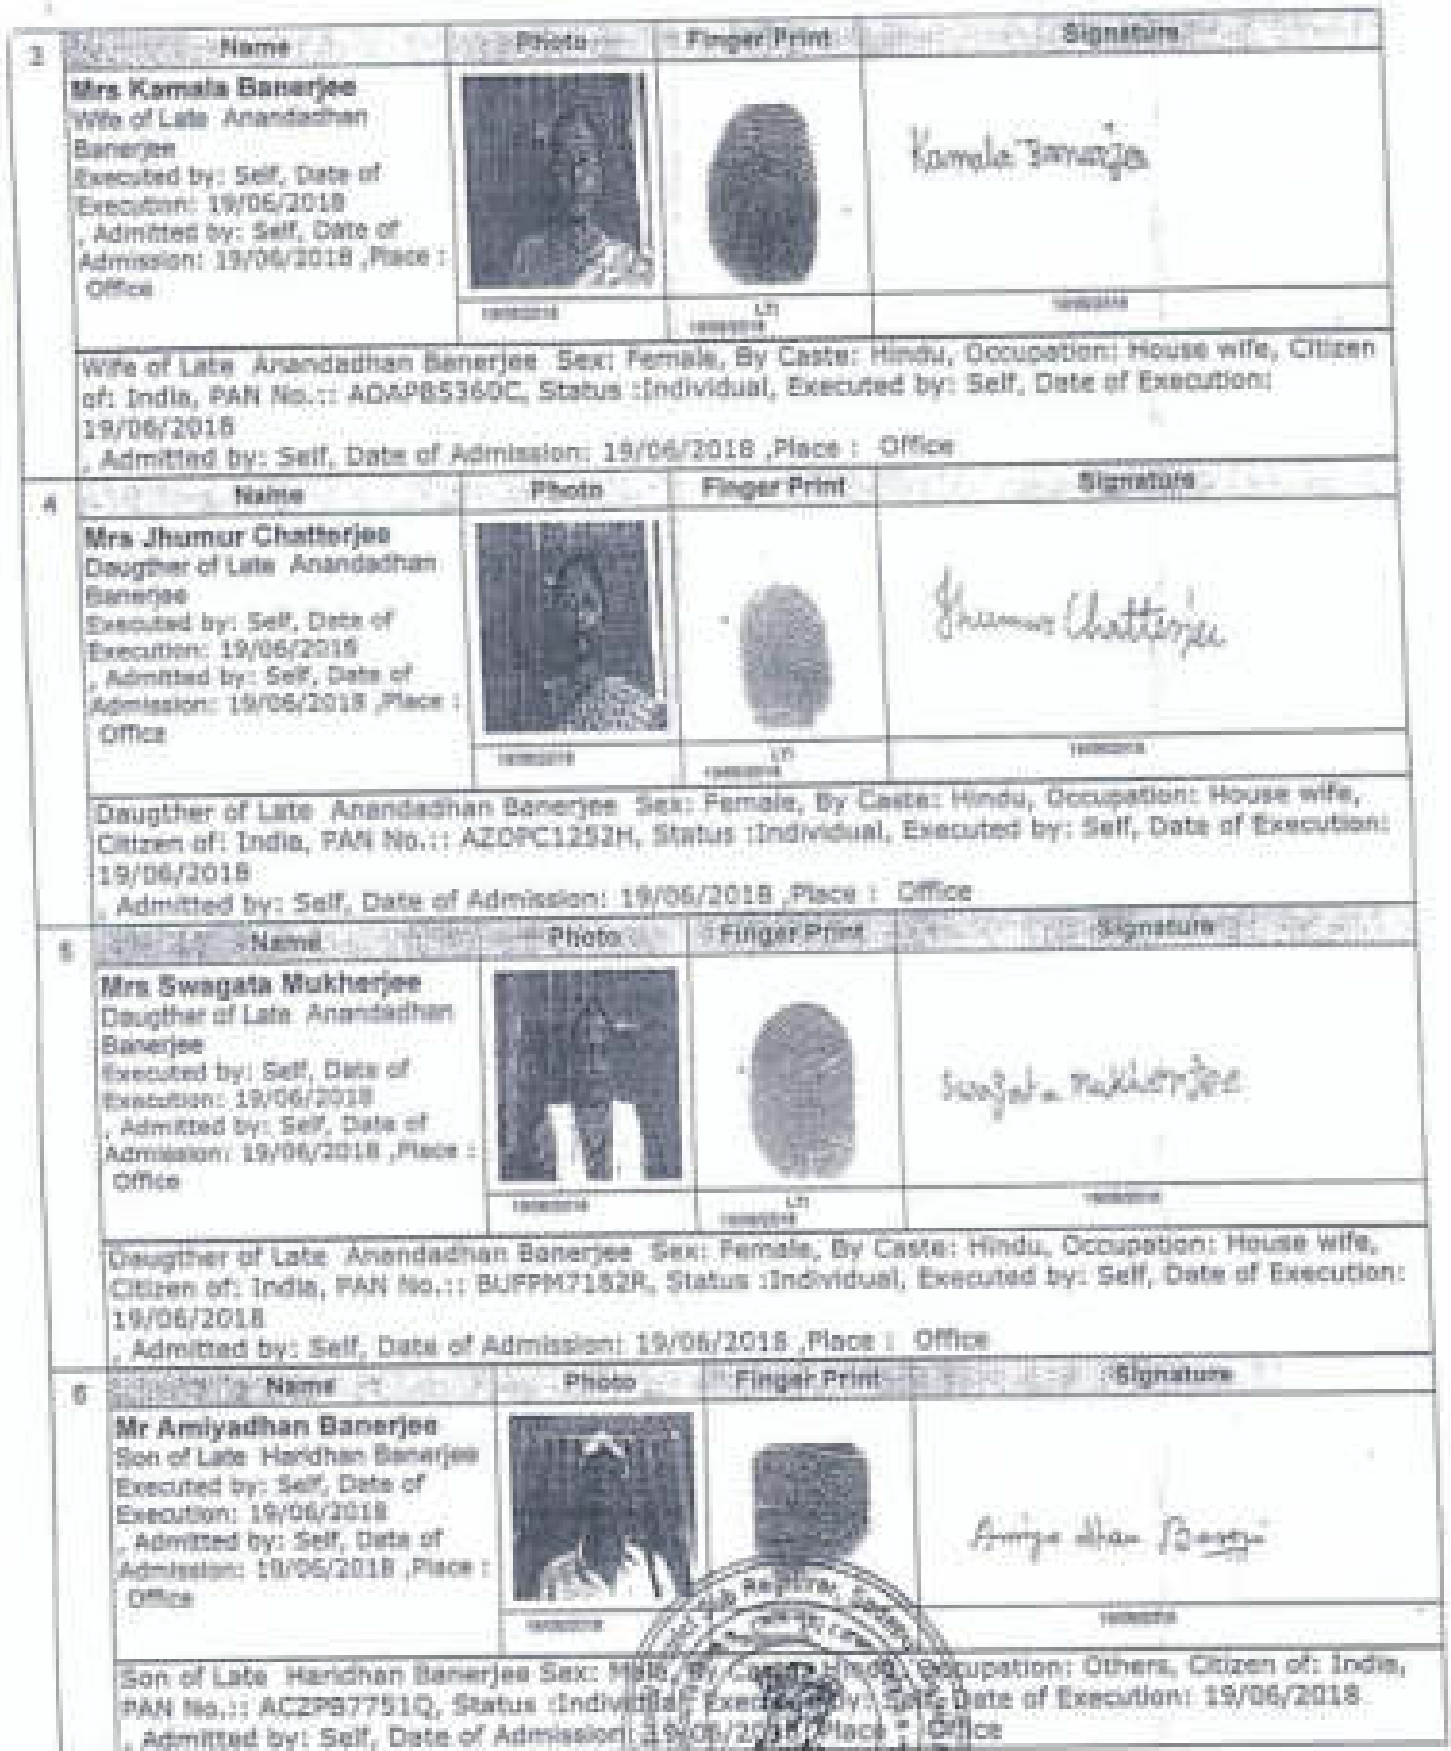 3
Name Photo Finger Print Signature
Mrs Kamala Banerjee
Wife of Late Anandadhan
Banerjee
Executed by: Self, Date of
Execution: 19/06/2018
, Admitted by: Self, Date of
Admission: 19/06/2018 ,Place :
Office
Kamala Banerjee
19/06/2018 LTI 19/06/2018
19/06/2018
Wife of Late Anandadhan Banerjee Sex: Female, By Caste: Hindu, Occupation: House wife, Citizen
of: India, PAN No.:: Status :Individual, Executed by: Self, Date of Execution:
19/06/2018
, Admitted by: Self, Date of Admission: 19/06/2018 ,Place : Office
4
Name Photo Finger Print Signature
Mrs Jhumur Chatterjee
Daugther of Late Anandadhan
Banerjee
Executed by: Self, Date of
Execution: 19/06/2018
, Admitted by: Self, Date of
Admission: 19/06/2018 ,Place :
Office
Jhumur Chatterjee
19/06/2018 LTI 19/06/2018
19/06/2018
Daugther of Late Anandadhan Banerjee Sex: Female, By Caste: Hindu, Occupation: House wife,
Citizen of: India, PAN No.:: AZOPC1252H, Status :Individual, Executed by: Self, Date of Execution:
19/06/2018
, Admitted by: Self, Date of Admission: 19/06/2018 ,Place : Office
5
Name Photo Finger Print Signature
Mrs Swagata Mukherjee
Daugther of Late Anandadhan
Banerjee
Executed by: Self, Date of
Execution: 19/06/2018
, Admitted by: Self, Date of
Admission: 19/06/2018 ,Place :
Office
Swagata Mukherjee
19/06/2018 LTI 19/06/2018
19/06/2018
Daugther of Late Anandadhan Banerjee Sex: Female, By Caste: Hindu, Occupation: House wife,
Citizen of: India, PAN No.:: BUFPM7182R, Status :Individual, Executed by: Self, Date of Execution:
19/06/2018
, Admitted by: Self, Date of Admission: 19/06/2018 ,Place : Office
6
Name Photo Finger Print Signature
Mr Amiyadhan Banerjee
Son of Late Haridhan Banerjee
Executed by: Self, Date of
Execution: 19/06/2018
, Admitted by: Self, Date of
Admission: 19/06/2018 ,Place :
Office
Amiya dhan Banerji
19/06/2018
19/06/2018
Sub Registrar,
Son of Late Haridhan Banerjee Sex: Male, By Caste: Hindu, Occupation: Others, Citizen of: India,
PAN No.:: ACZPB7751Q, Status :Individual, Executed by: Self, Date of Execution: 19/06/2018
, Admitted by: Self, Date of Admission: 19/06/2018 ,Place : Office